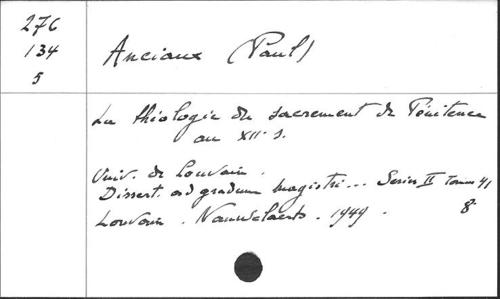 276
134
5
Anciaux (Paul)
La théologie du sacrement de Pénitence
au XIIe s.
Univ. de Louvain.
Dissert. ad gradum magistri... Series II Tomus 41
Louvain. Nauwelaerts. 1949. 8°